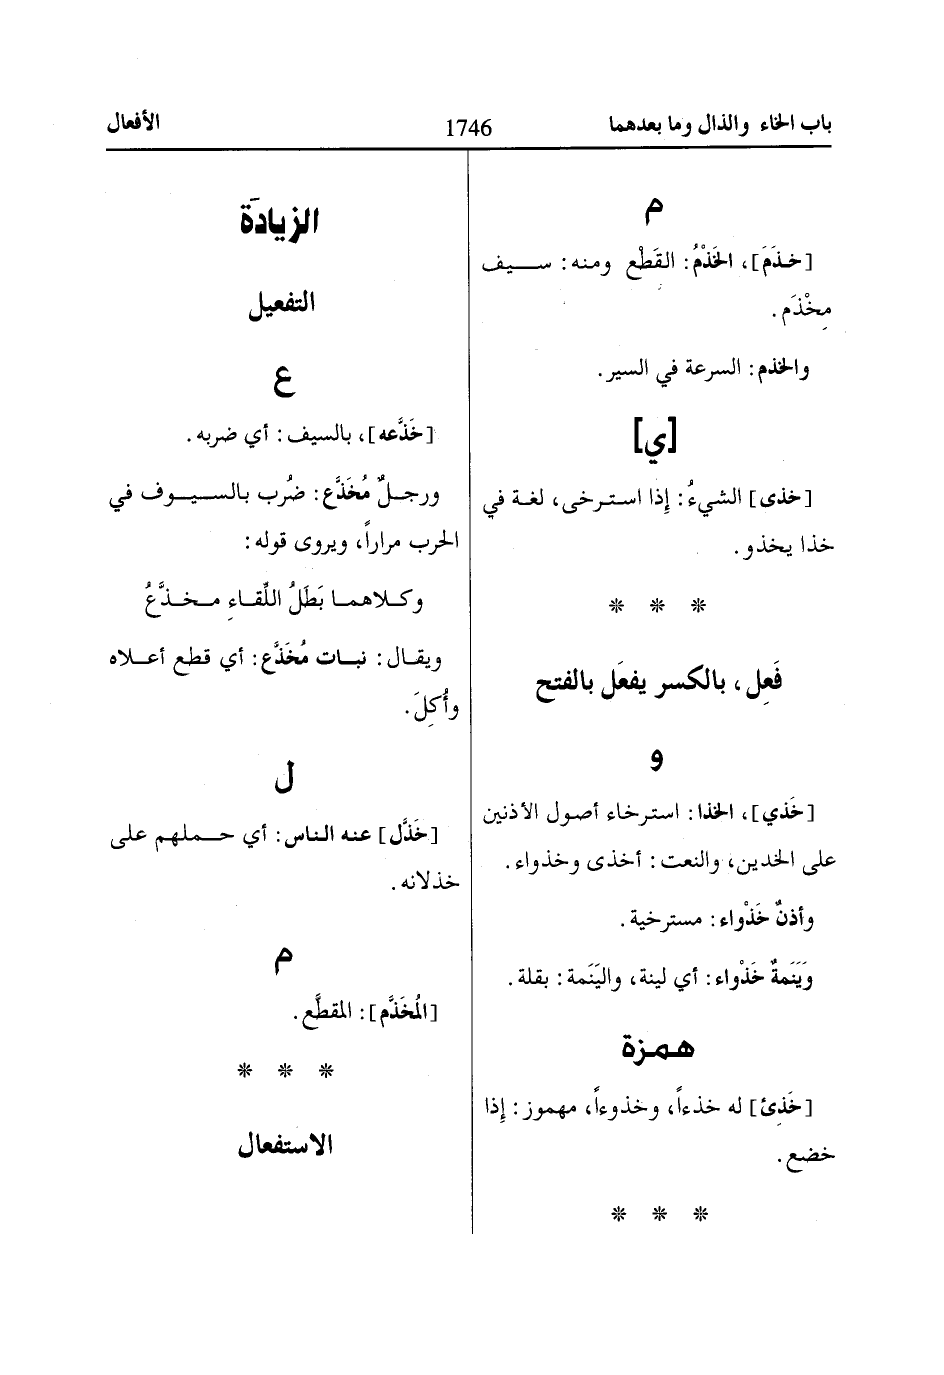 باب الخاء والذال وما بعدهما
1746
الأفعال
م
[خذَمَ]، الخَذْمُ: القَطْع ومنه: سـيف
مِخْذَم.
والخذم: السرعة في السير.
[ي]
[خذى] الشيءُ: إذا استرخى، لغة في
خذا يخذو.
* * *
فَعِل، بالكسر يفعَل بالفتح
و
[خَذي]، الخذا: استرخاء أصول الأذنين
على الخدين، والنعت: أخذى وخذواء.
وأذنٌ خَذْواء: مسترخية.
وَيَنَمةٌ خَذْواء: أي لينة، واليَنَمة: بقلة.
همزة
[خَذِئ] له خذءاً، وخذوءاً، مهموز: إذا
خضع.
* * *
الزيادة
التفعيل
ع
[خَذَّعه]، بالسيف: أي ضربه.
ورجلٌ مُخَذَّع: ضُرب بالسيوف في
الحرب مراراً، ويروى قوله:
وكلاهما بَطَلُ اللِّقاءِ مخذَّعُ
ويقال: نبات مُخَذَّع: أي قطع أعلاه
وأُكِلَ.
ل
[خَذَّل] عنه الناس: أي حملهم على
خذلانه.
م
[المُخَذَّم]: المقطَّع.
* * *
الاستفعال